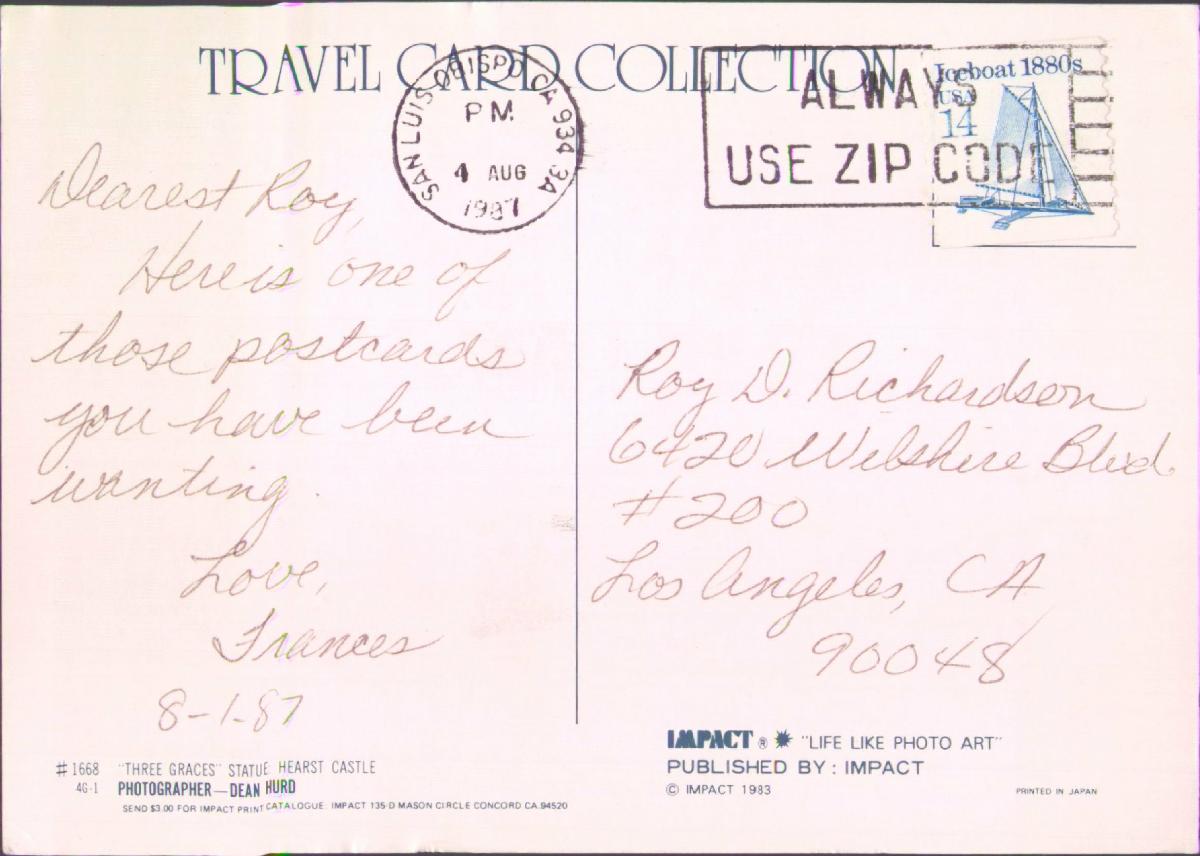 TRAVEL CARD COLLECTION
SAN LUIS OBISPO CA 934 3A
PM
4 AUG
1987
ALWAYS
USE ZIP CODE
Iceboat 1880s
USA
14
Dearest Roy,
Here is one of
those postcards
you have been
wanting.
Love,
Frances
8-1-87
Roy D. Richardson
6420 Wilshire Blvd.
#200
Los Angeles, CA
90048
#1668 "THREE GRACES" STATUE HEARST CASTLE
4G-1 PHOTOGRAPHER—DEAN HURD
SEND $3.00 FOR IMPACT PRINT CATALOGUE: IMPACT 135-D MASON CIRCLE CONCORD CA. 94520
IMPACT ® "LIFE LIKE PHOTO ART"
PUBLISHED BY: IMPACT
© IMPACT 1983
PRINTED IN JAPAN